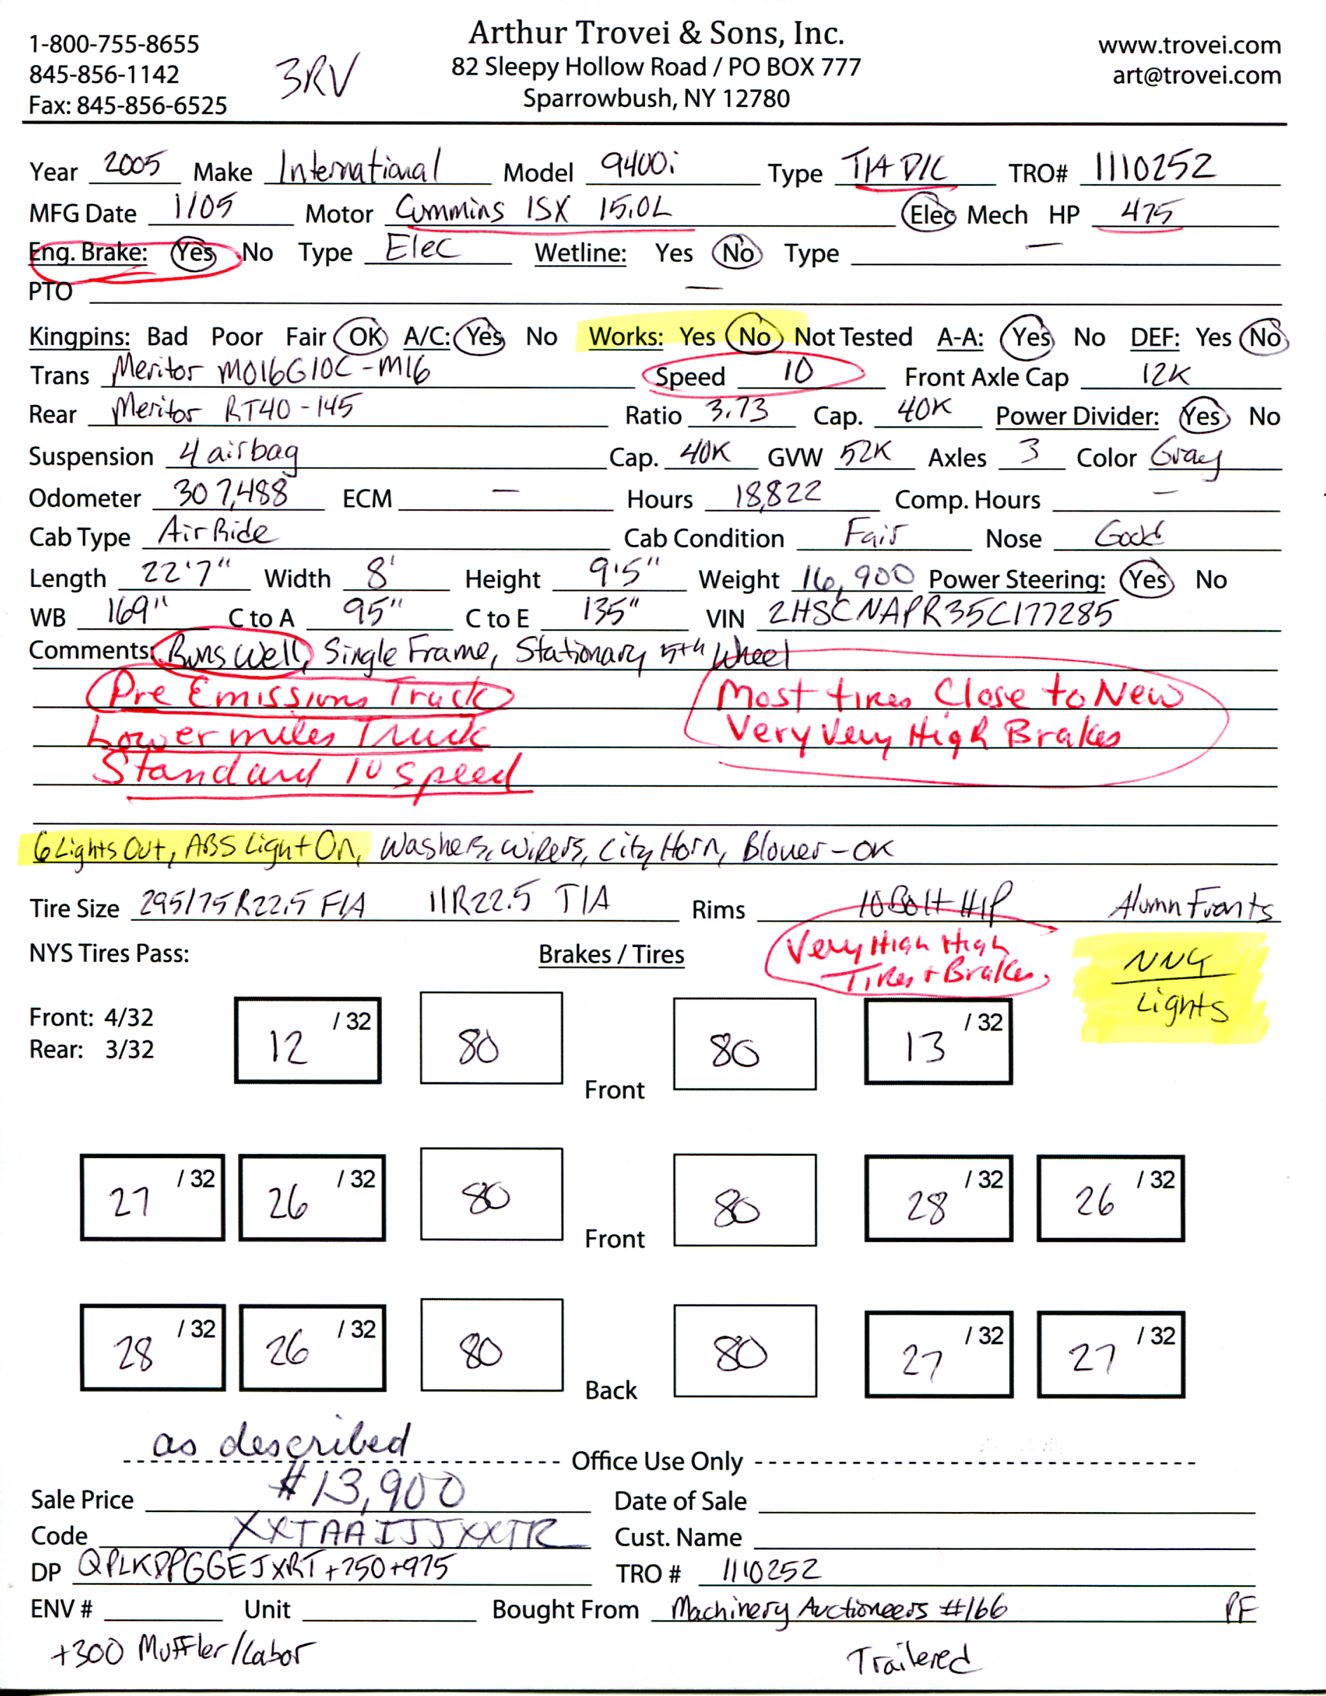 1-800-755-8655
845-856-1142
Fax: 845-856-6525
3RV
Arthur Trovei & Sons, Inc.
82 Sleepy Hollow Road / PO BOX 777
Sparrowbush, NY 12780
www.trovei.com
art@trovei.com
Year 2005 Make International Model 9400i Type T/A D/C TRO# 1110252
MFG Date 1/05 Motor Cummins ISX 15.0L Elec Mech HP 475
Eng. Brake: Yes No Type Elec Wetline: Yes No Type —
PTO —
Kingpins: Bad Poor Fair OK A/C: Yes No Works: Yes No Not Tested A-A: Yes No DEF: Yes No
Trans Meritor MO16G10C-M16 Speed 10 Front Axle Cap 12K
Rear Meritor RT40-145 Ratio 3.73 Cap. 40K Power Divider: Yes No
Suspension 4 airbag Cap. 40K GVW 52K Axles 3 Color Gray
Odometer 307,488 ECM — Hours 18,822 Comp. Hours —
Cab Type Air Ride Cab Condition Fair Nose Good
Length 22'7" Width 8' Height 9'5" Weight 16,900 Power Steering: Yes No
WB 169" C to A 95" C to E 135" VIN 2HSCNAPR35C177285
Comments: Runs Well, Single Frame, Stationary 5th Wheel
Pre Emissions Truck Most tires Close to New
Lower miles Truck Very Very High Brakes
Standard 10 speed
6 Lights Out, ABS Light On, Washers, Wipers, City Horn, Blower-OK
Tire Size 295/75R22.5 F/A 11R22.5 T/A Rims 10 Bolt H/P Alumn Fronts
NYS Tires Pass: Brakes / Tires Very High High Tires + Brakes
NNG
Lights
Front: 4/32
Rear: 3/32
12 /32 80 Front 80 13 /32
27 /32 26 /32 80 Front 80 28 /32 26 /32
28 /32 26 /32 80 Back 80 27 /32 27 /32
as described
Office Use Only
Sale Price $13,900 Date of Sale
Code XXTAAIJJXXTR Cust. Name
DP QPLKDPGGEJXRT+750+975 TRO # 1110252
ENV # Unit Bought From Machinery Auctioneers #166 PF
+300 Muffler/Labor Trailered